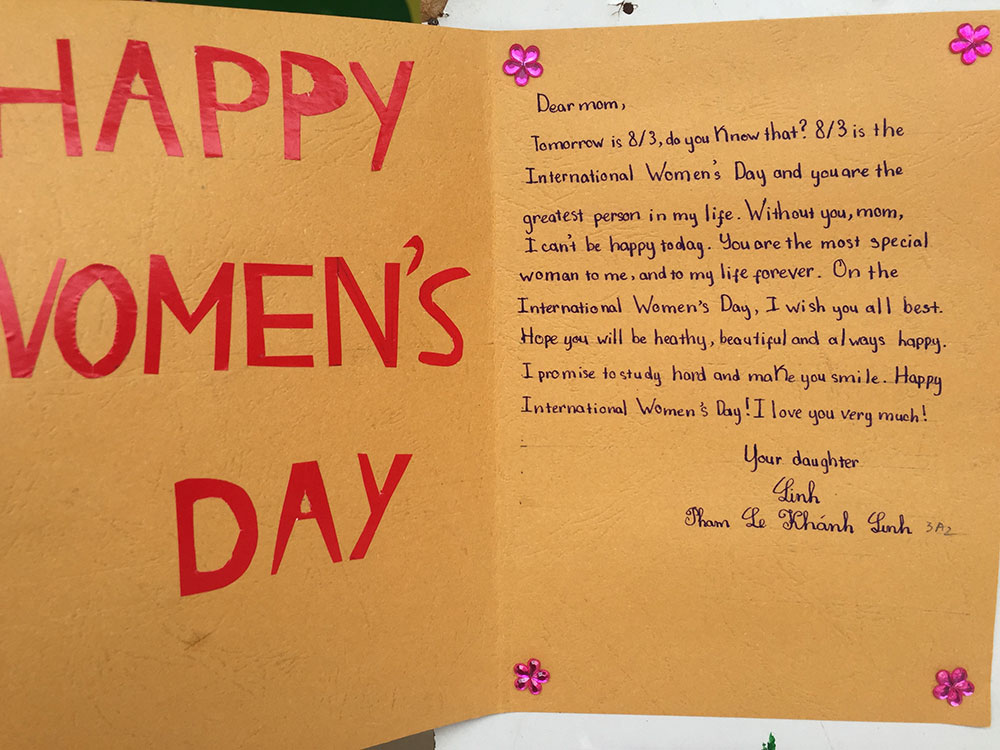 HAPPY
WOMEN'S
DAY
Dear mom,
Tomorrow is 8/3, do you know that? 8/3 is the
International Women's Day and you are the
greatest person in my life. Without you, mom,
I can't be happy today. You are the most special
woman to me, and to my life forever. On the
International Women's Day, I wish you all best.
Hope you will be heathy, beautiful and always happy.
I promise to study hard and make you smile. Happy
International Women's Day! I love you very much!
Your daughter
Linh
Pham Le Khánh Linh 3A2